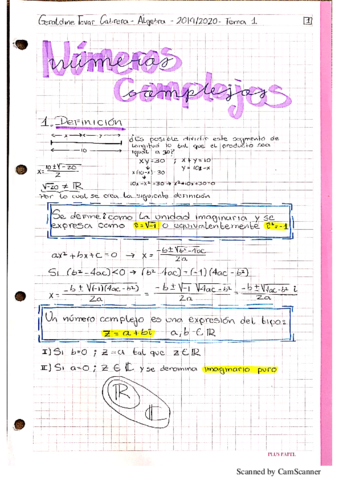 Geraldine Tovar Cabrera - Algebra - 2019/2020 - Tema 1
1
Números
complejos
1. Definición
x y
10
¿Es posible dividir este segmento de
longitud 10 tal que el producto sea
igual a 30?
xy=30 ; x+y=10
y=10-x
x(10-x)=30
10x-x²=30 → x²-10x+30=0
x= 10±√-20 / 2
√-20 ∉ ℝ
Por lo cual se crea la siguiente definición
Se define i como la unidad imaginaria y se
expresa como i=√-1 o equivalentemente i²=-1
ax²+bx+c=0 → x= -b±√b²-4ac / 2a
Si (b²-4ac)<0 → (b²-4ac)=(-1)(4ac-b²)
x= -b±√(-1)(4ac-b²) / 2a = -b±√-1 √4ac-b² / 2a = -b±√4ac-b² i / 2a
Un número complejo es una expresión del tipo:
z=a+bi a,b ∈ ℝ
I) Si b=0 ; z=a tal que z∈ℝ
II) Si a=0 ; z∈ℂ y se denomina imaginario puro
ℝ
ℂ
PLUS PAPEL
Scanned by CamScanner